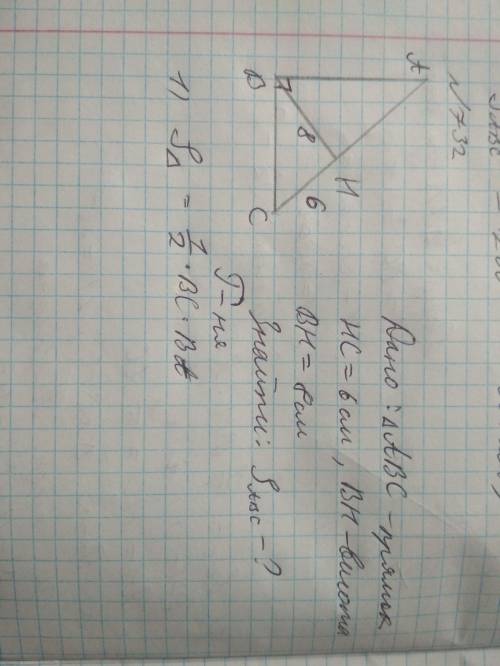 №732
A
B
C
H
8
6
Дано: ΔABC – прямок
HC = 6 см, BH – висота
BH = 8 см
Знайти: S ABC – ?
Р – ня
1) SΔ = 1/2 · BC · BA